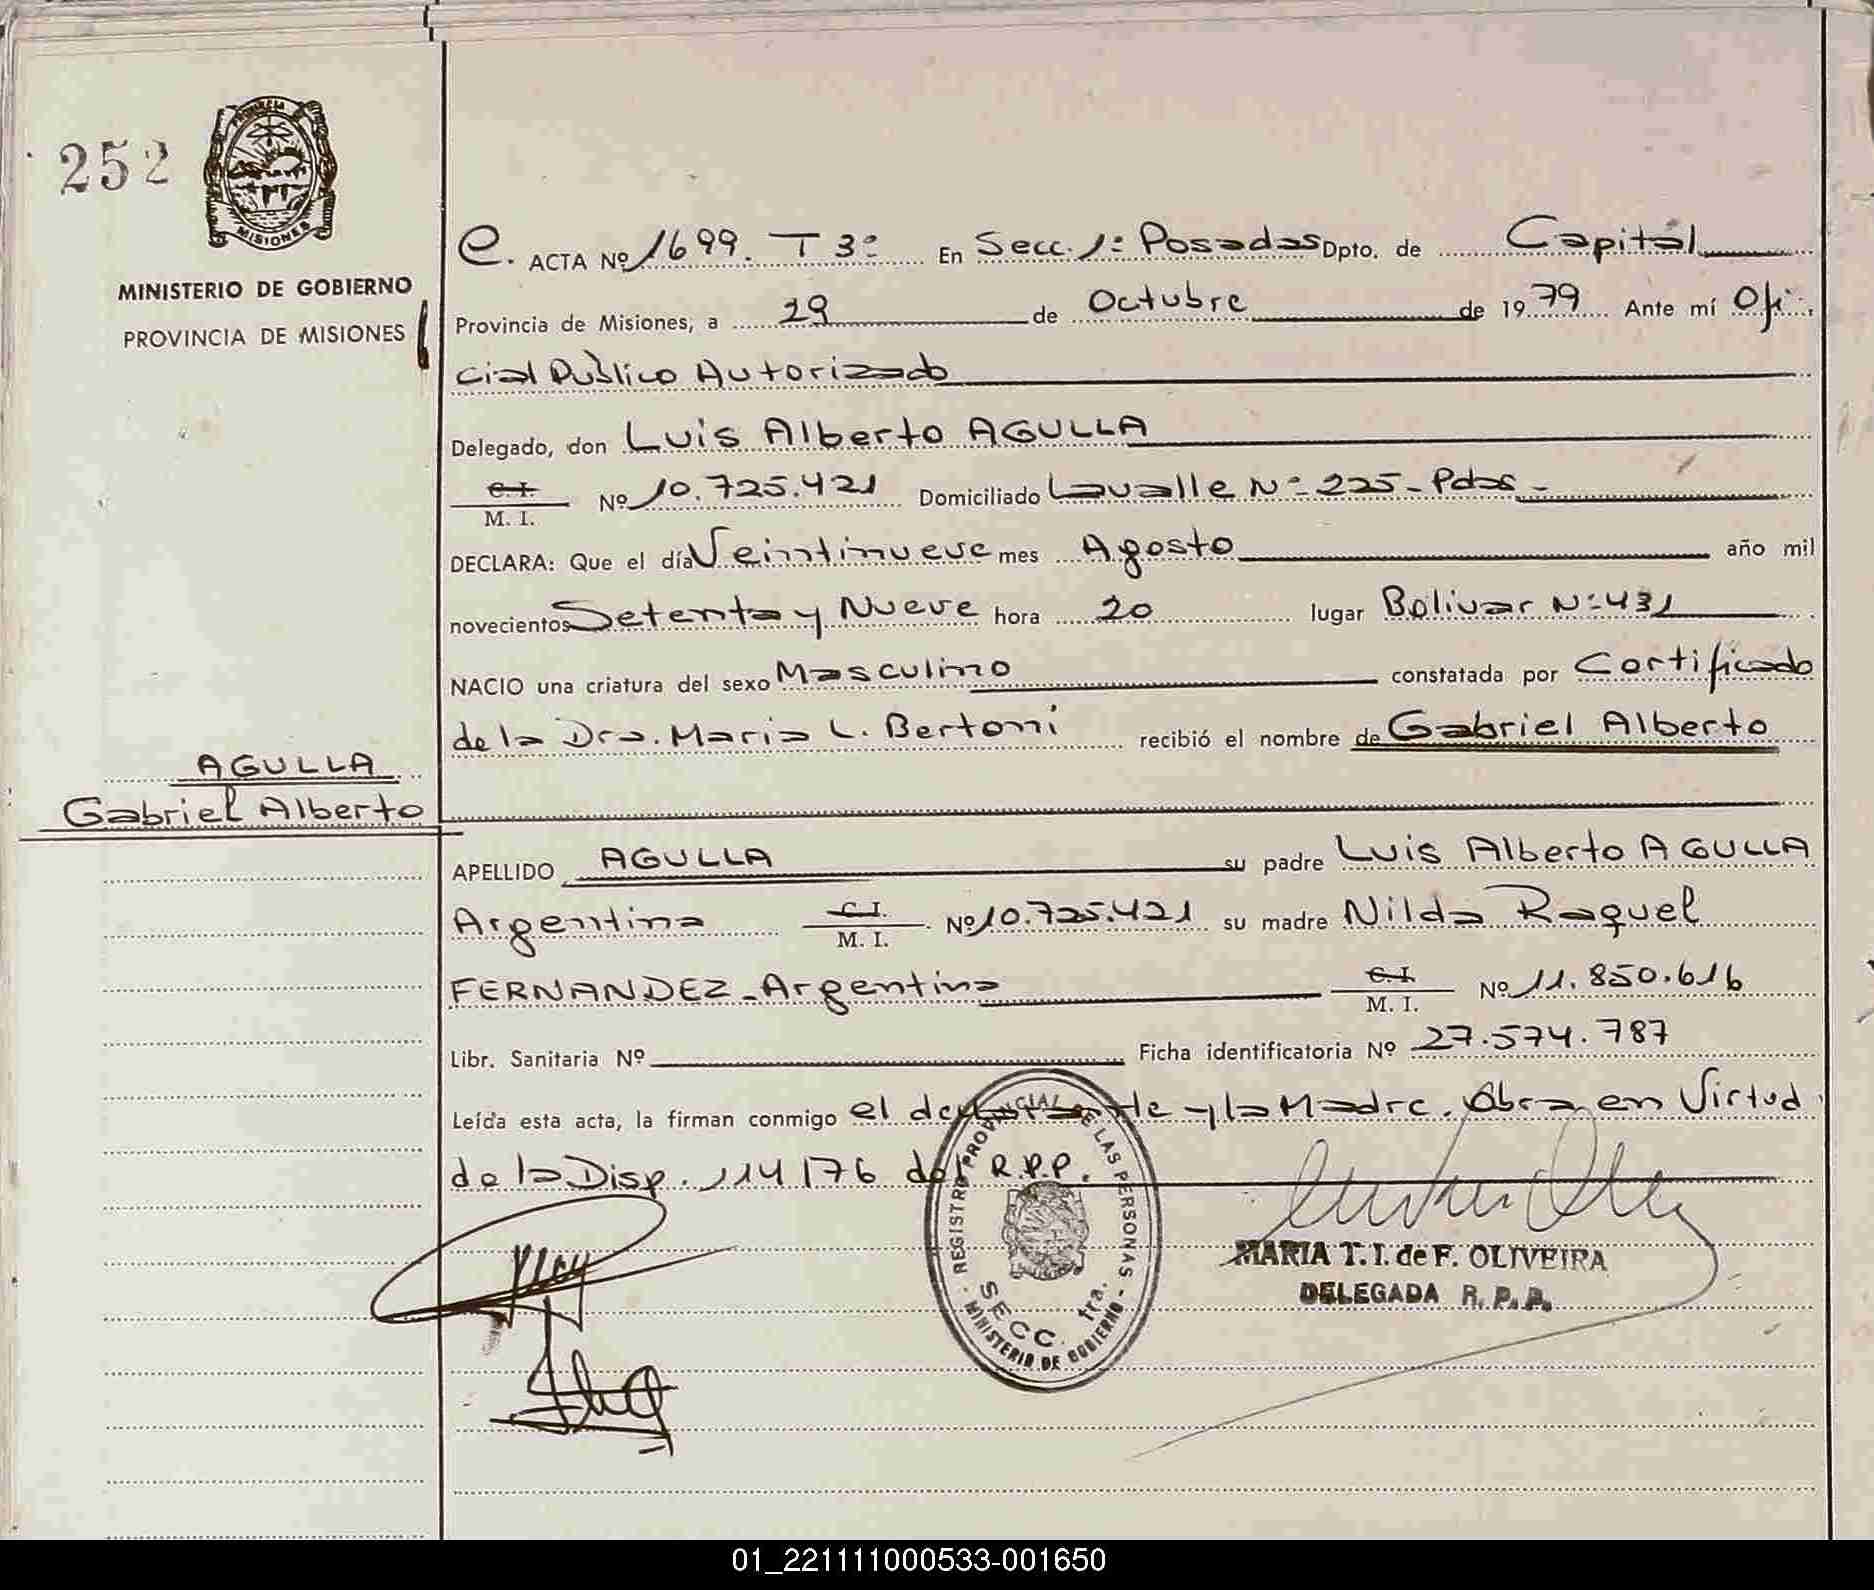 252
PROVINCIA
MISIONES
MINISTERIO DE GOBIERNO
PROVINCIA DE MISIONES
AGULLA
Gabriel Alberto
e. ACTA Nº 1699. T 3º En Secc. 1º Posadas Dpto. de Capital
Provincia de Misiones, a 29 de Octubre de 1979 Ante mí Ofi
cial Público Autorizado
Delegado, don Luis Alberto AGULLA
C.I.
M. I. Nº 10.725.421 Domiciliado Lavalle Nº 225 - Pdas -
DECLARA: Que el día Veintinueve mes Agosto año mil
novecientos Setenta y Nueve hora 20 lugar Bolivar Nº 431
NACIO una criatura del sexo Masculino constatada por Certificado
de la Dra. Maria L. Bertoni recibió el nombre de Gabriel Alberto
APELLIDO AGULLA su padre Luis Alberto AGULLA
Argentina C.I.
M. I. Nº 10.725.421 su madre Nilda Raquel
FERNANDEZ - Argentina C.I.
M. I. Nº 11.850.616
Libr. Sanitaria Nº Ficha identificatoria Nº 27.574.787
Leída esta acta, la firman conmigo el declarante y la Madre. Obra en Virtud
de la Disp. 114/76 del R.P.P.
REGISTRO PROVINCIAL DE LAS PERSONAS
SECC. 1ra.
MINISTERIO DE GOBIERNO
MARIA T. I. de F. OLIVEIRA
DELEGADA R. P. P.
01_221111000533-001650